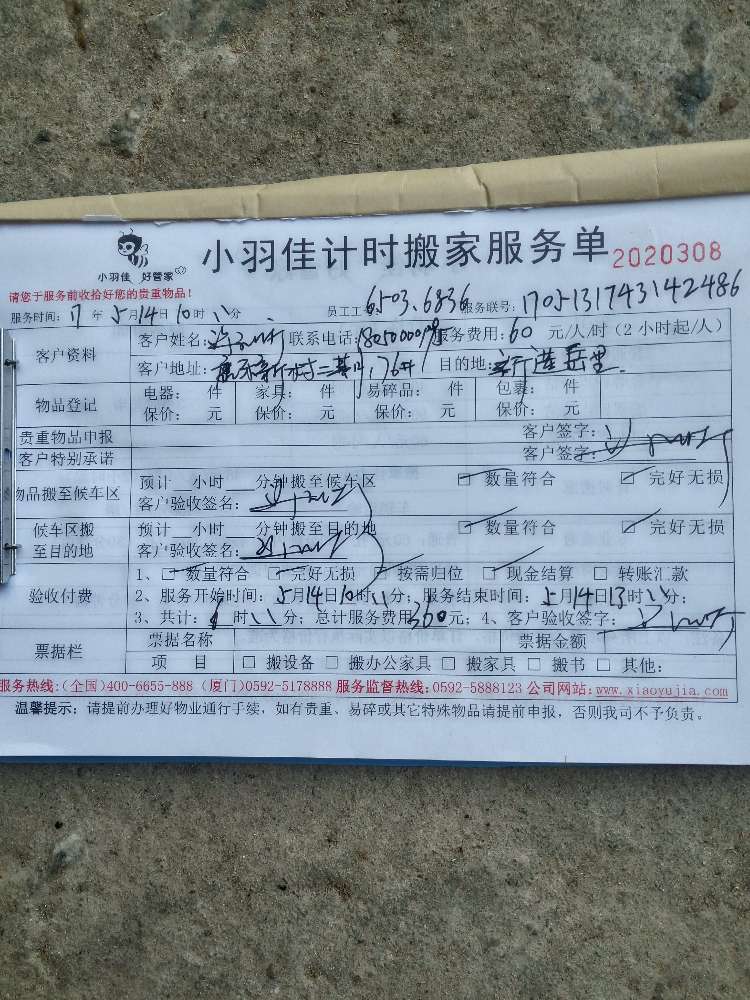 小羽佳 好管家
小羽佳计时搬家服务单 2020308
请您于服务前收拾好您的贵重物品!
服务时间: 17 年 5月14日10时 分 员工工 6503.6836 服务联号: 170513174314 2486
客户资料 客户姓名: 联系电话: 服务费用: 60 元/人/时 (2小时起/人)
客户地址: 目的地:
物品登记 电器: 件 家具: 件 易碎品: 件 包裹: 件
保价: 元 保价: 元 保价: 元 保价: 元
贵重物品申报 客户签字:
客户特别承诺 客户签字:
物品搬至候车区 预计 小时 分钟搬至候车区 ☑ 数量符合 ☑ 完好无损
客户验收签名:
候车区搬至目的地 预计 小时 分钟搬至目的地 ☑ 数量符合 ☑ 完好无损
客户验收签名:
验收付费 1、☑ 数量符合 ☑ 完好无损 ☑ 按需归位 ☑ 现金结算 □ 转账汇款
2、服务开始时间: 5月14日10时 分; 服务结束时间: 5月14日13时 分;
3、共计: 时 分; 总计服务费用360元; 4、客户验收签字:
票据栏 票据名称 票据金额
项 目 □ 搬设备 □ 搬办公家具 □ 搬家具 □ 搬书 □ 其他:
服务热线:(全国)400-6655-888 (厦门)0592-5178888 服务监督热线:0592-5888123 公司网站:www.xiaoyujia.com
温馨提示: 请提前办理好物业通行手续, 如有贵重、易碎或其它特殊物品请提前申报, 否则我司不予负责。